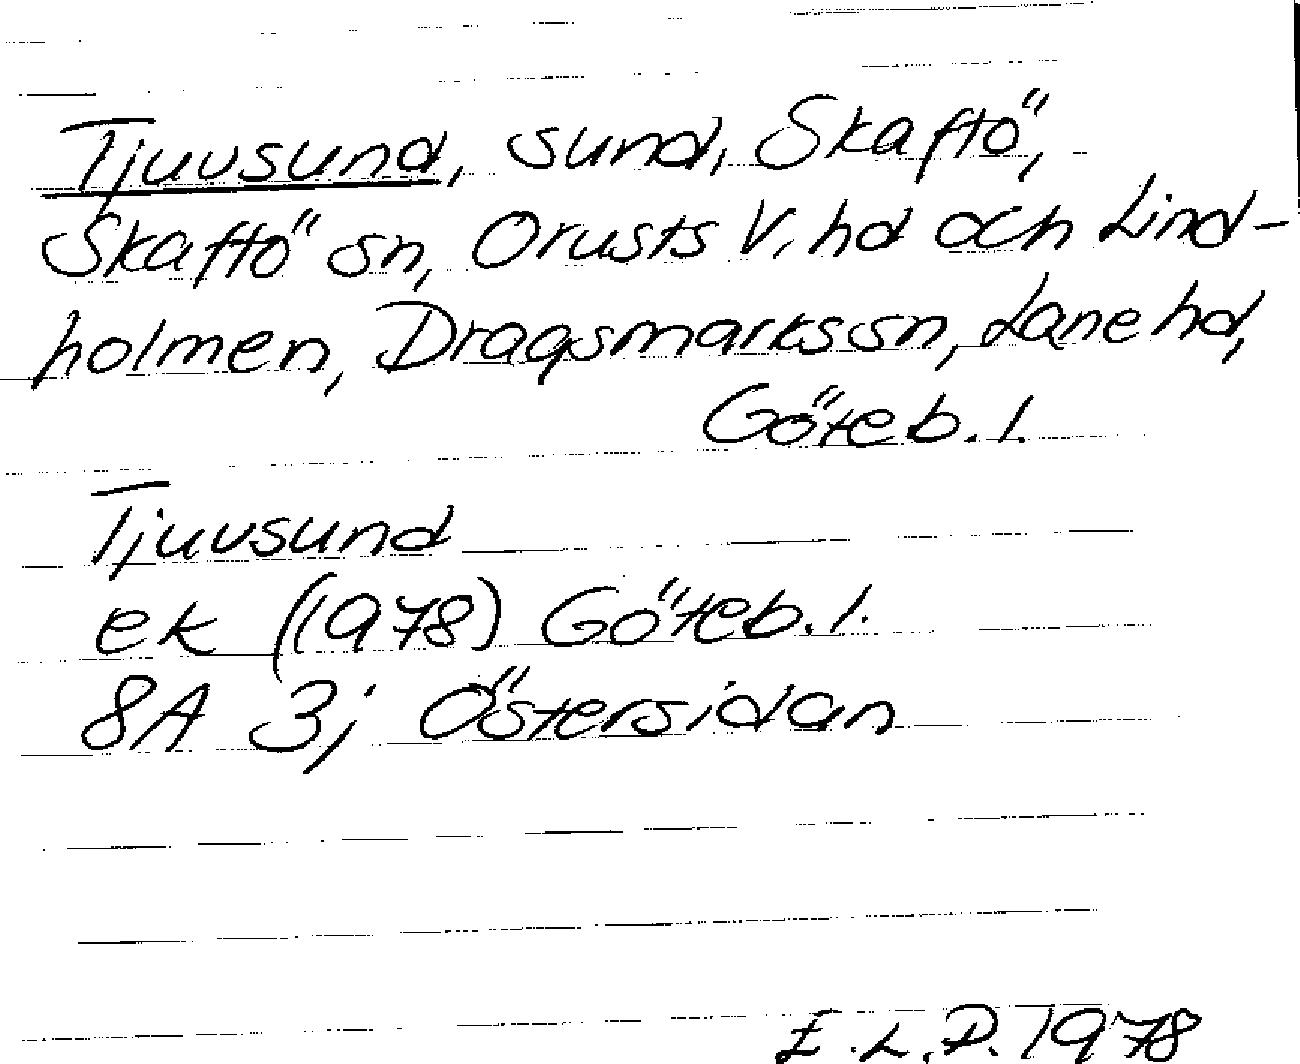 Tjuvsund, sund, Skaftö,
Skaftö sn, Orusts V. hd och Lind-
holmen, Dragsmarks sn, Lane hd,
Göteb. l.
Tjuvsund
ek (1978) Göteb. l.
8A 3j Östersidan
E.L.P. 1978